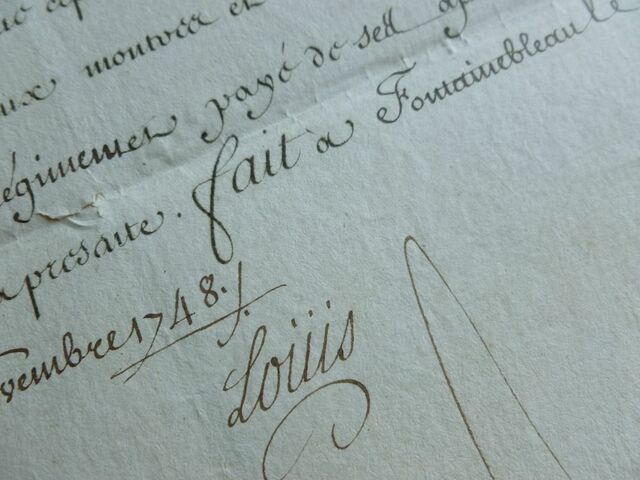 montrea et
régiment payé de sell
présante. fait à Fontainebleau le
vembre 1748.
Loüis